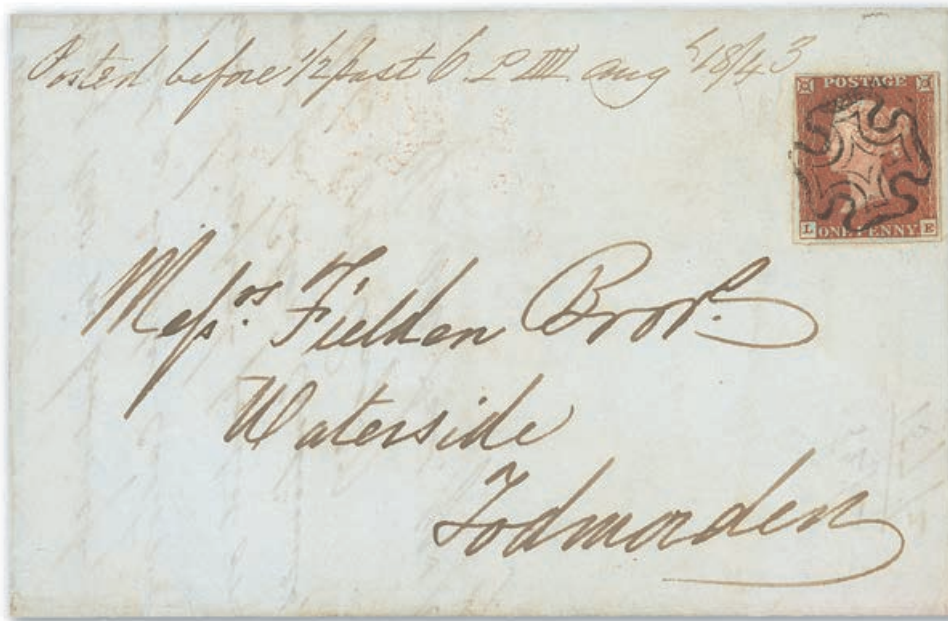 Posted before 1/2 past 6 P M Aug 4 1843
POSTAGE
L ONE PENNY E
Messrs. Fielden Bros.
Waterside
Todmorden